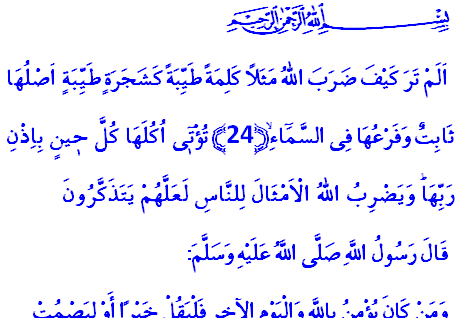 بِسْمِ اللهِ الرَّحْمٰنِ الرَّحِيمِ
اَلَمْ تَرَ كَيْفَ ضَرَبَ اللهُ مَثَلًا كَلِمَةً طَيِّبَةً كَشَجَرَةٍ طَيِّبَةٍ اَصْلُهَا
ثَابِتٌ وَفَرْعُهَا فِى السَّمَٓاءِۙ ﴿24﴾ تُؤْتٖٓى اُكُلَهَا كُلَّ حٖينٍ بِاِذْنِ
رَبِّهَاۜ وَيَضْرِبُ اللهُ الْاَمْثَالَ لِلنَّاسِ لَعَلَّهُمْ يَتَذَكَّرُونَ
قَالَ رَسُولُ اللَّهِ صَلَّى اللَّهُ عَلَيْهِ وَسَلَّمَ:
وَمَنْ كَانَ يُؤْمِنُ بِاللَّهِ وَالْيَوْمِ الآخِرِ فَلْيَقُلْ خَيْرًا أَوْ لِيَصْمُتْ